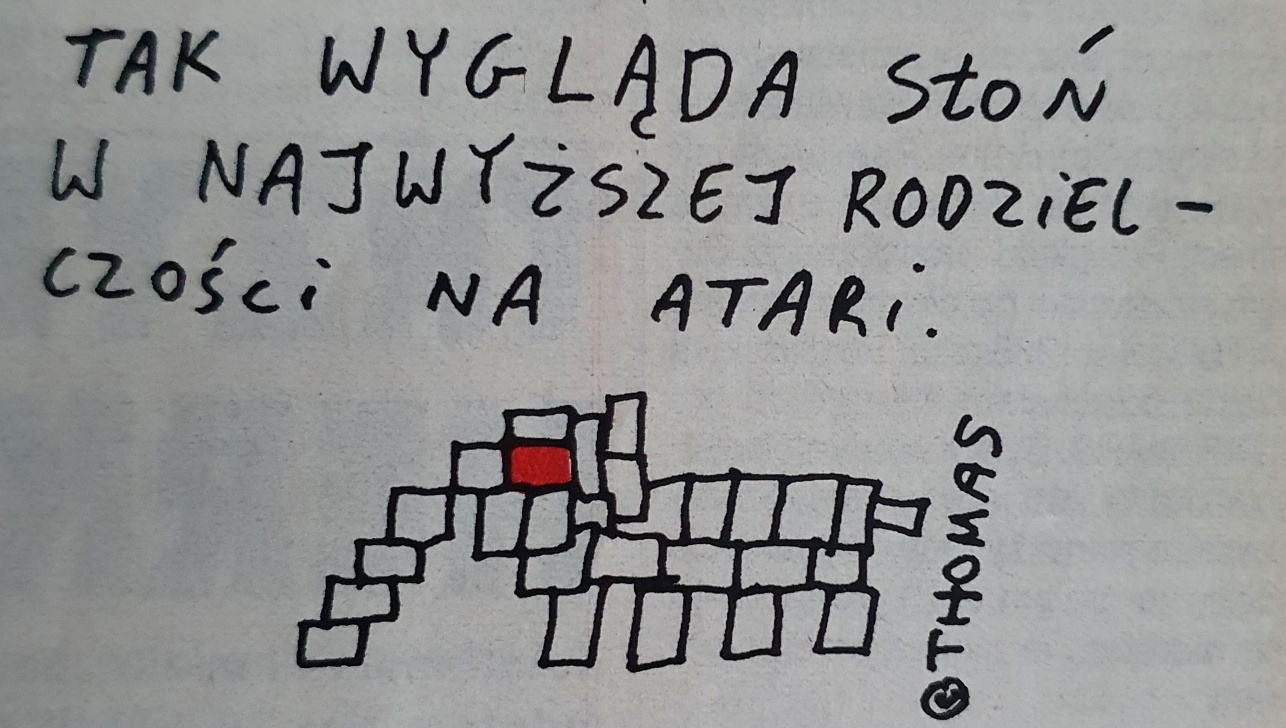 TAK WYGLĄDA SŁOŃ
W NAJWYŻSZEJ RODZIEL-
CZOŚCi NA ATARi.
©THOMAS